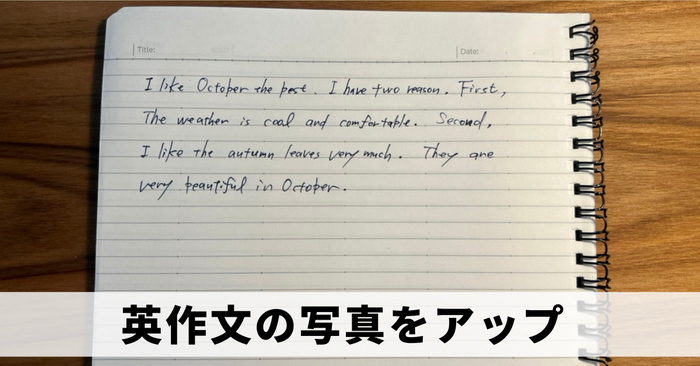 Title: Date:
I like October the best. I have two reason. First,
The weather is cool and comfortable. Second,
I like the autumn leaves very much. They are
very beautiful in October.
英作文の写真をアップ